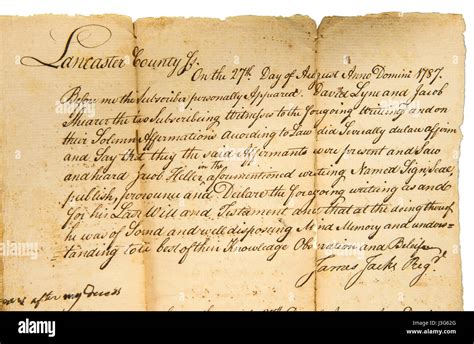 Lancaster County Ss.
On the 27th Day of August Anno Domini 1787.
Before me the Subscriber personally Appeared David Lyne and Jacob
Shearer the two Subscribing Witnesses to the foregoing Writing and on
their Solemn Affirmations According to Law did Severally declare affirm
and Say that they the said Affirmants were present and Saw
and heard Jacob Heller in the aforementioned writing Named Sign Seal
publish, pronounce and Declare the foregoing writing as and
for his Last Will and Testament and that at the doing thereof
he was of Sound and well disposing Mind Memory and under-
standing to the best of their Knowledge Observation and Belief
James Jacks Regr.
after my
alamy
Image ID: J3G62G
www.alamy.com